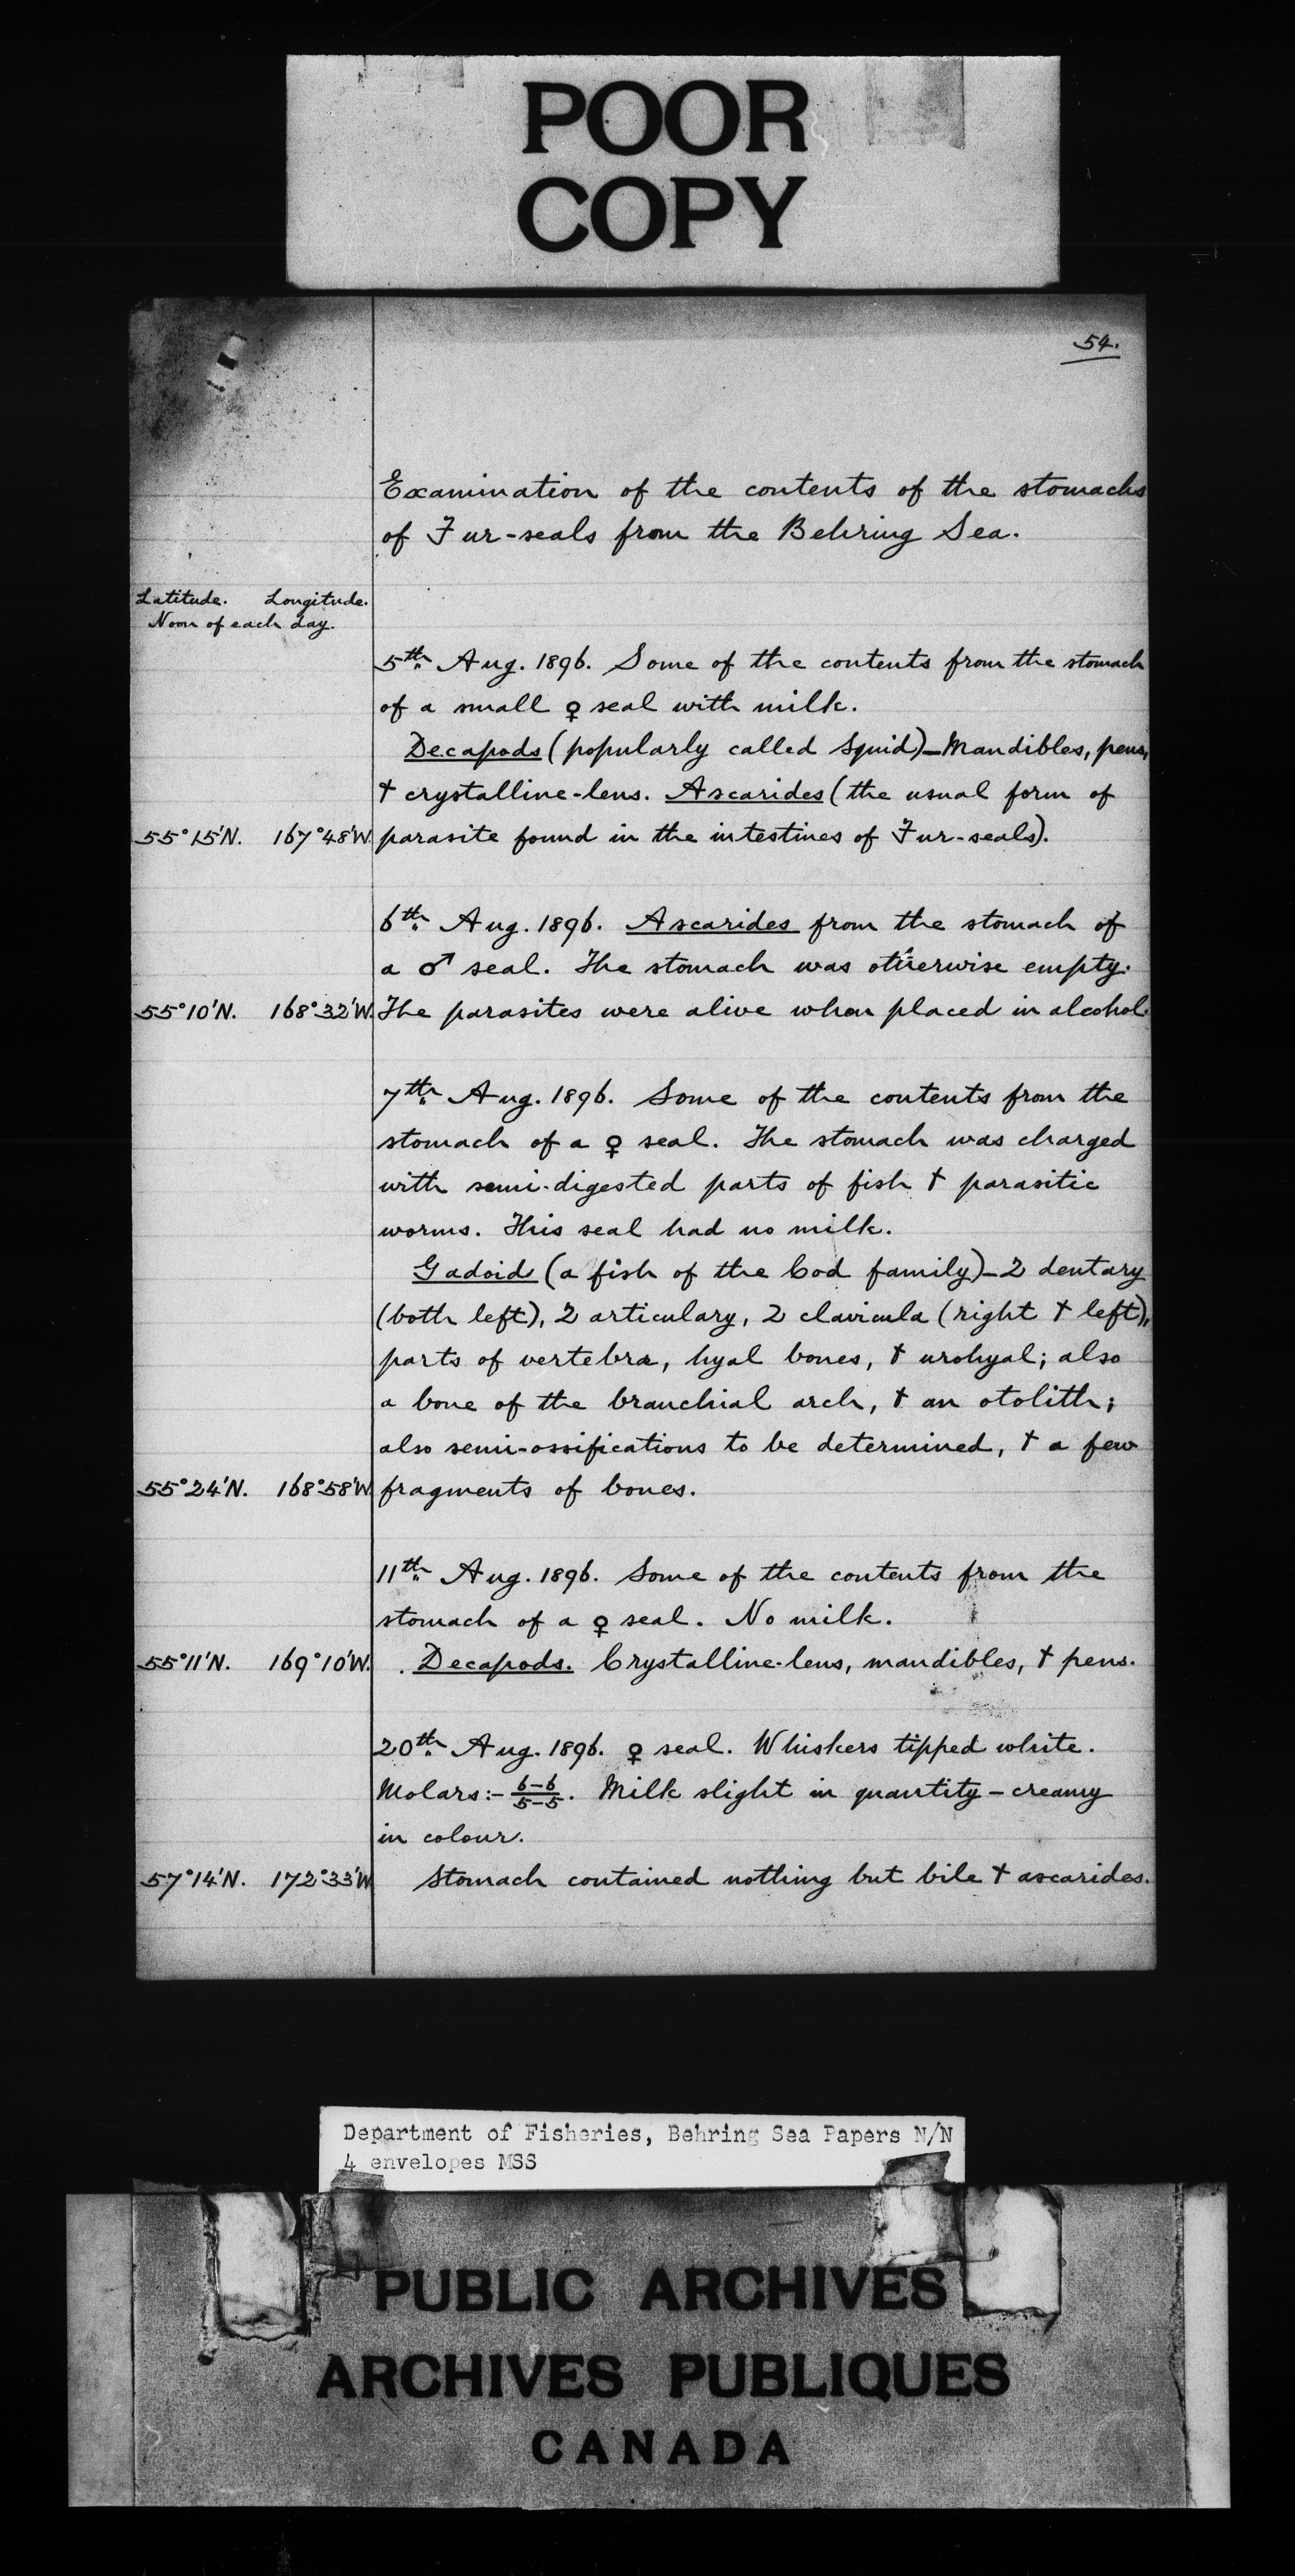 POOR
COPY
54.
Examination of the contents of the stomachs
of Fur-seals from the Behring Sea.
Latitude. Longitude.
Noon of each day.
5th Aug. 1896. Some of the contents from the stomach
of a small ♀ seal with milk.
Decapods (popularly called Squid)—Mandibles, pens,
+ crystalline-lens. Ascarides (the usual form of
55°15'N. 167°48'W. parasite found in the intestines of Fur-seals).
6th Aug. 1896. Ascarides from the stomach of
a ♂ seal. The stomach was otherwise empty.
55°10'N. 168°32'W. The parasites were alive when placed in alcohol.
7th Aug. 1896. Some of the contents from the
stomach of a ♀ seal. The stomach was charged
with semi-digested parts of fish + parasitic
worms. This seal had no milk.
Gadoid (a fish of the Cod family)—2 dentary
(both left), 2 articulary, 2 clavicula (right + left),
parts of vertebra, hyal bones, + urohyal; also
a bone of the branchial arch, + an otolith;
also semi-ossifications to be determined, + a few
55°24'N. 168°58'W. fragments of bones.
11th Aug. 1896. Some of the contents from the
stomach of a ♀ seal. No milk.
55°11'N. 169°10'W. Decapods. Crystalline-lens, mandibles, + pens.
20th Aug. 1896. ♀ seal. Whiskers tipped white.
Molars:- 6-6/5-5. Milk slight in quantity - creamy
in colour.
57°14'N. 172°33'W Stomach contained nothing but bile + ascarides.
Department of Fisheries, Behring Sea Papers N/N
4 envelopes MSS
PUBLIC ARCHIVES
ARCHIVES PUBLIQUES
CANADA